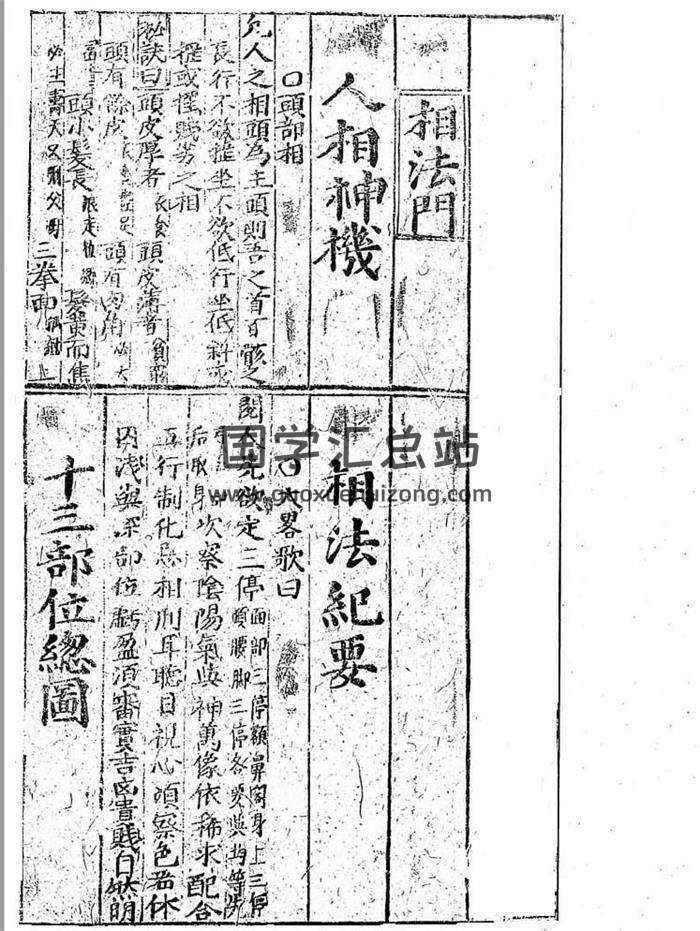 相法門
人相神機
○頭部相
凡人之相頭為主頭則吾之首百骸之
長行不欲搖坐不欲低行坐低斜或
搖或擺賤劣之相
秘訣曰頭皮厚者衣食 頭皮薄者貧窮
頭有餘皮 衣足 頭有肉角必大
富 頭小髮長 髮黃而焦
必主壽夭又刑父母 三拳面 上
相法紀要
○大畧歌曰
閱人先欲定三停面部三停額鼻閣身上三停
頭腰脚三停各要與均等先
后取身次察陰陽氣與神萬像依稀求配合
五行制化忌相刑耳聽目視心須察色若休
囚淺與深部位虧盈須審實吉凶貴賤自然明
十三部位總圖
国学汇总站
www.guoxuehuizong.com